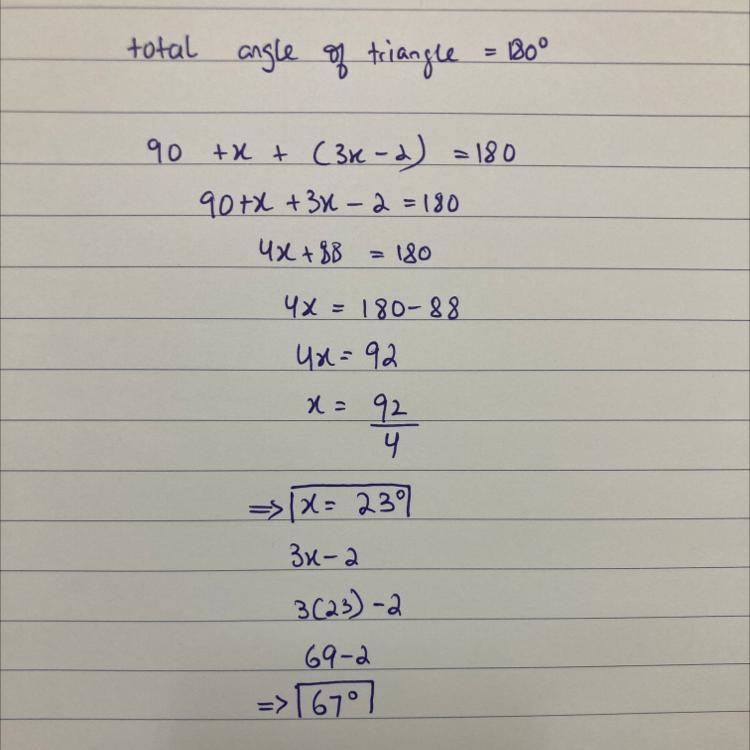 total angle of triangle = 180°
90 +x + (3x-2) =180
90+x +3x-2 =180
4x+88 = 180
4x = 180-88
4x= 92
x = 92/4
=> x= 23°
3x-2
3(23) -2
69-2
=> 67°